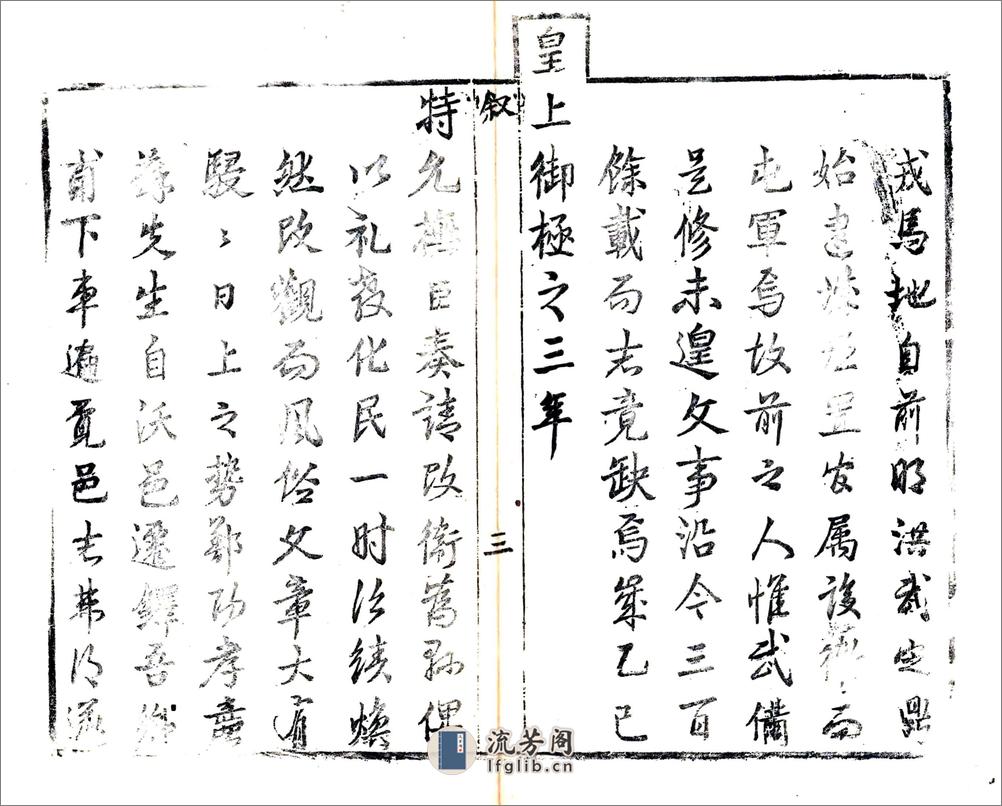 戎馬地自前明洪武定鼎
始建城池置官属設衛而
屯軍焉故前之人惟武備
是修未遑文事沿今三百
餘載而志竟缺焉歲乙巳
皇上御極之三年
叙
三
特
允撫臣奏請改衛爲縣俾
以礼教化民一时治績煥
然改觀而風俗文章大有
駸〻日上之勢鄭功孝
先生自沃邑遷鐸吾
甫下車遍覓邑志弗得
流芳阁
lfglib.cn